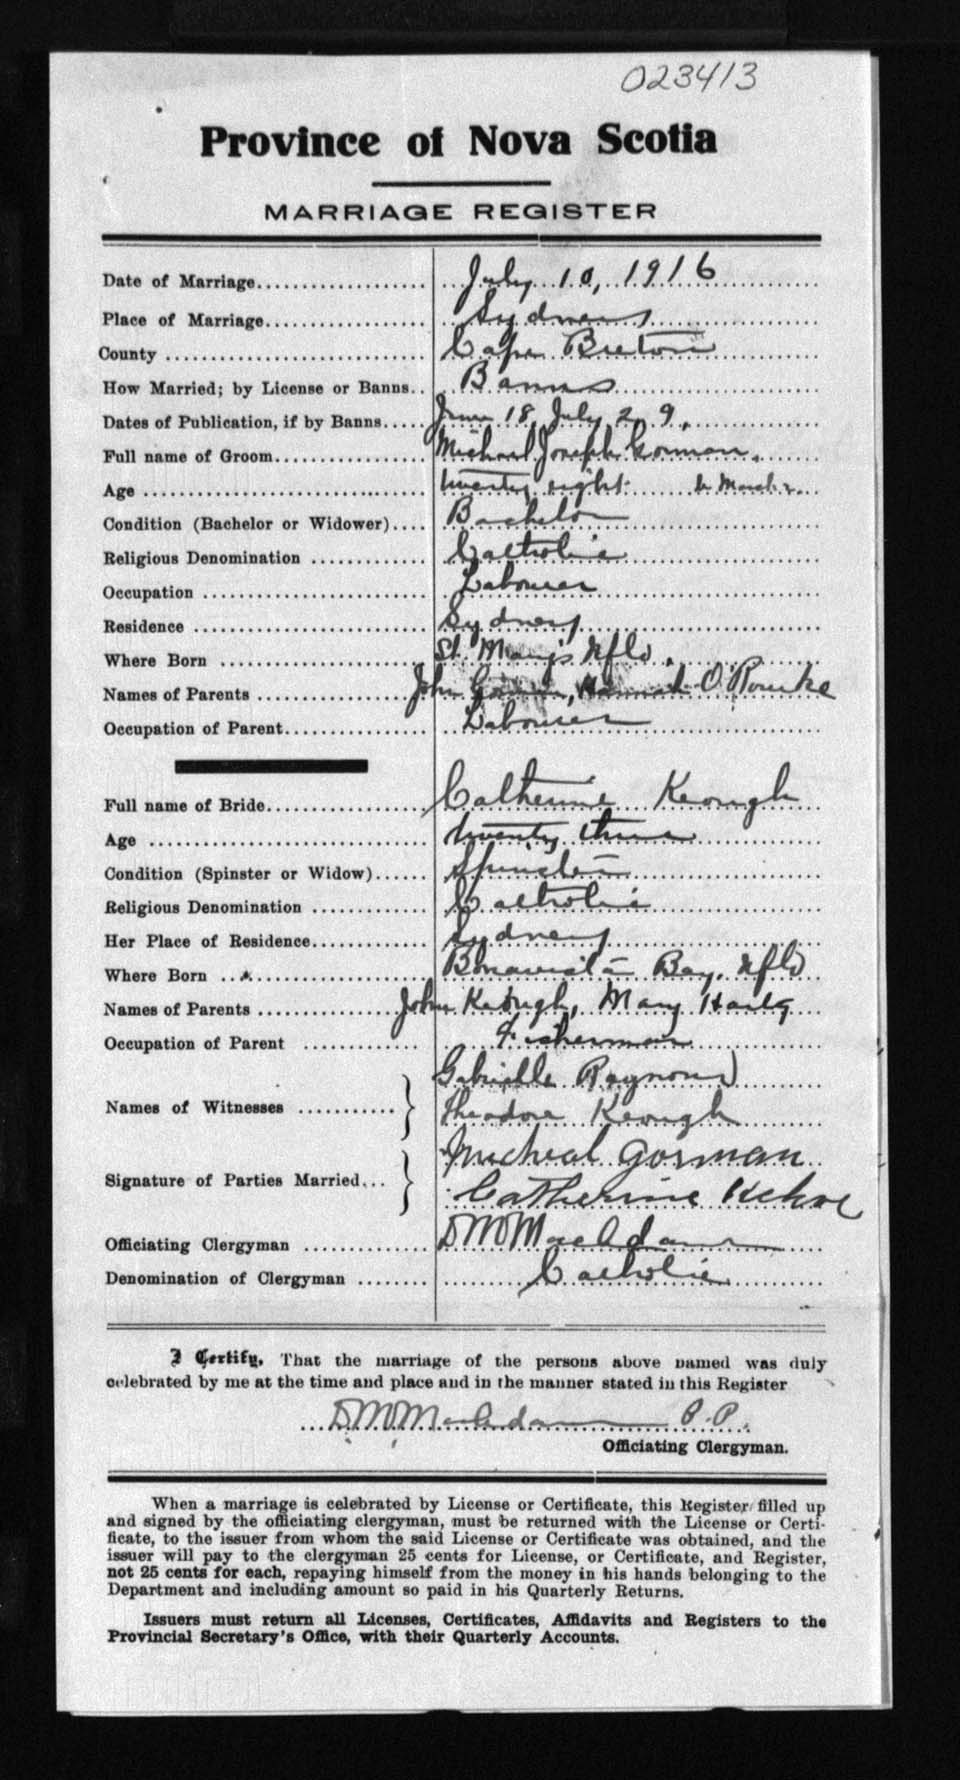 023413
Province of Nova Scotia
MARRIAGE REGISTER
Date of Marriage July 10, 1916
Place of Marriage Sydney
County Cape Breton
How Married; by License or Banns Banns
Dates of Publication, if by Banns June 18, July 2, 9.
Full name of Groom Michael Joseph Gorman.
Age twenty eight
Condition (Bachelor or Widower) Bachelor
Religious Denomination Catholic
Occupation Labourer
Residence Sydney
Where Born St. Mary's Nfld.
Names of Parents John Gorman, Hannah O'Rourke
Occupation of Parent Labourer
Full name of Bride Catherine Keough
Age twenty three
Condition (Spinster or Widow) Spinster
Religious Denomination Catholic
Her Place of Residence Sydney
Where Born Bonavista Bay, Nfld
Names of Parents John Keough, Mary
Occupation of Parent Fisherman
Names of Witnesses Gabrielle Raymond
Theodore Keough
Signature of Parties Married Micheal Gorman
Catherine Kehoe
Officiating Clergyman D M MacAdam
Denomination of Clergyman Catholic
I Certify, That the marriage of the persons above named was duly
celebrated by me at the time and place and in the manner stated in this Register
D M MacAdam P. P.
Officiating Clergyman.
When a marriage is celebrated by License or Certificate, this Register filled up
and signed by the officiating clergyman, must be returned with the License or Certi-
ficate, to the issuer from whom the said License or Certificate was obtained, and the
issuer will pay to the clergyman 25 cents for License, or Certificate, and Register,
not 25 cents for each, repaying himself from the money in his hands belonging to the
Department and including amount so paid in his Quarterly Returns.
Issuers must return all Licenses, Certificates, Affidavits and Registers to the
Provincial Secretary's Office, with their Quarterly Accounts.